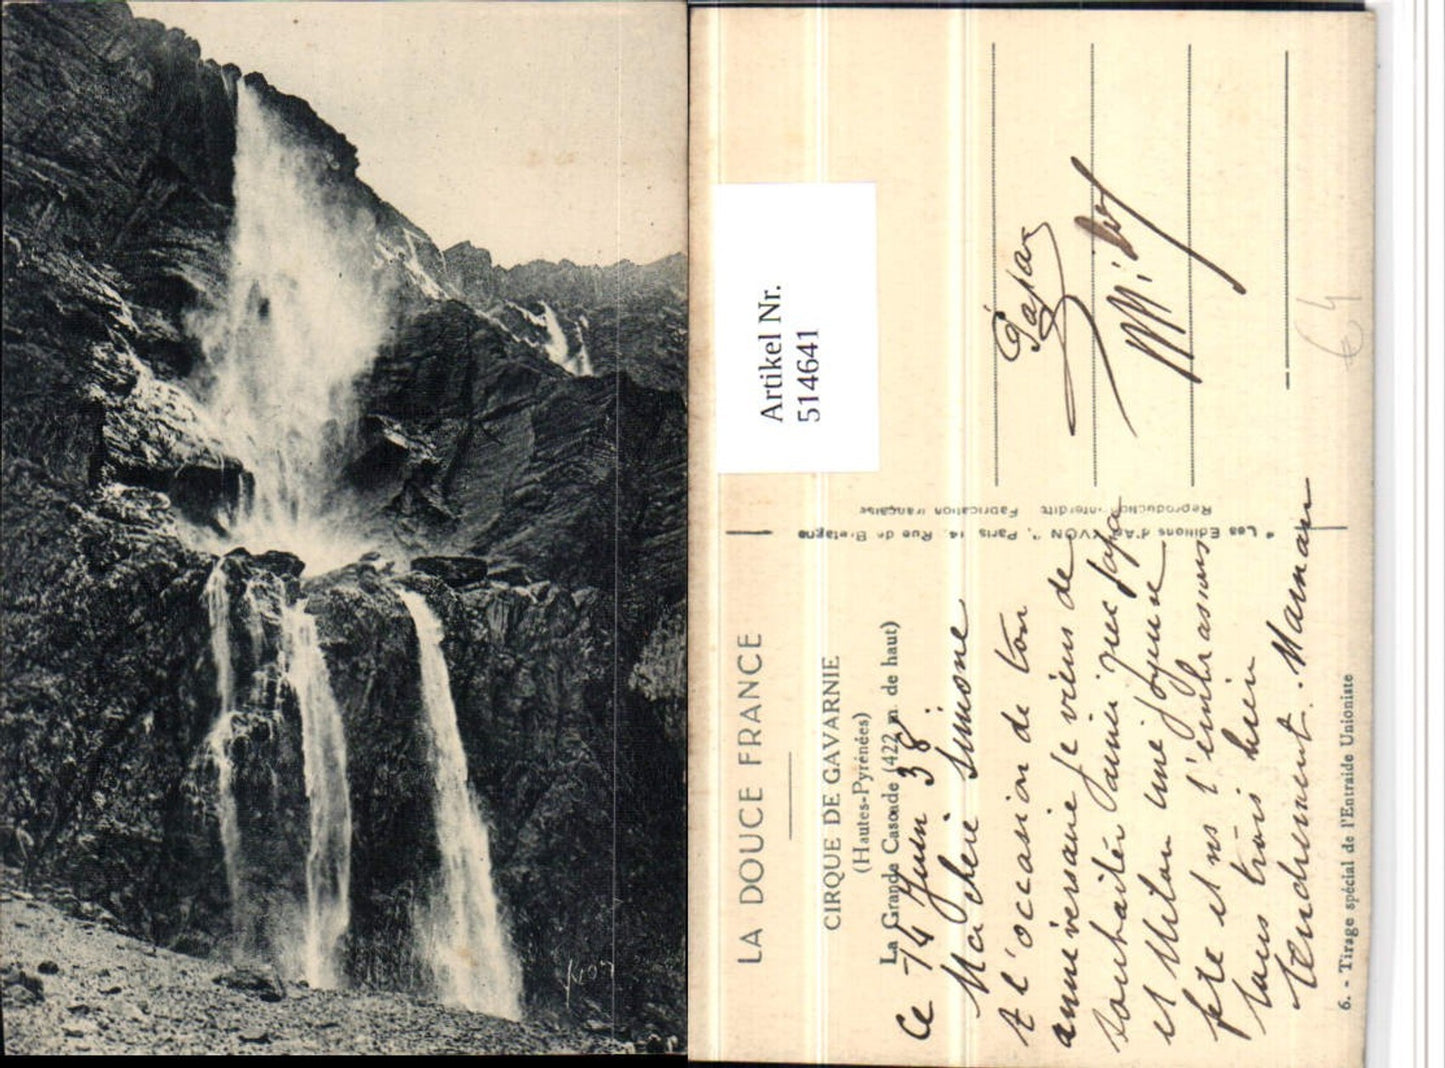 Yvon
Artikel Nr.
514641
LA DOUCE FRANCE
CIRQUE DE GAVARNIE
(Hautes-Pyrénées)
La Grande Cascade (422 m. de haut)
Ce 14 Juin 38
Ma cherie Simone
A l'occasion de ton
anniversaire je viens de
souhaiter ainsi que papa
et Milou une joyeuse
fête et ns t'embrassons
tous trois bien
tendrement. Maman
Papa
Milou
6. - Tirage spécial de l'Entraide Unioniste
" Les Editions d'Art YVON ", Paris 14, Rue de Bretagne
Reproduction interdite Fabrication française